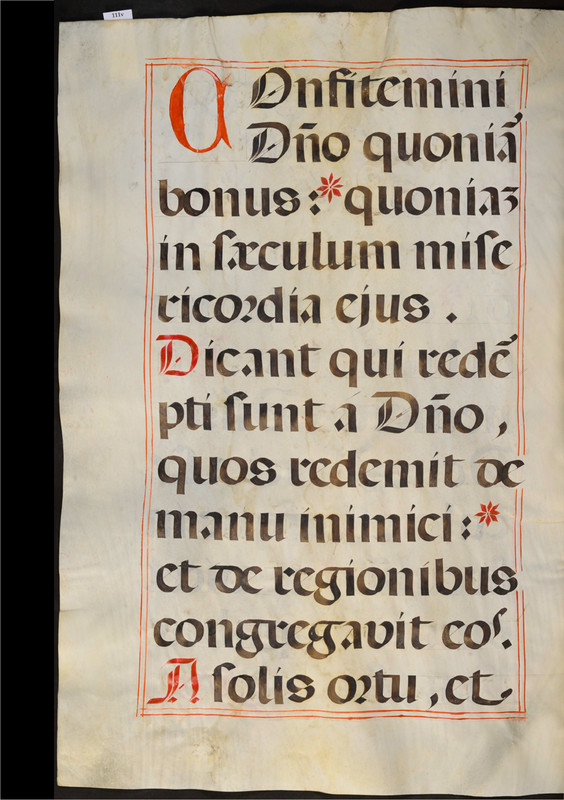 111v
COnfitemini
Dño quoniã
bonus: * quoniaz
in ſæculum miſe
ricoꝛdia ejus .
Dicant qui redẽ
pti ſunt á Dño ,
quos redemit de
manu inimici: *
et de regionibus
congregavit eoſ.
A ſolis oꝛtu , et